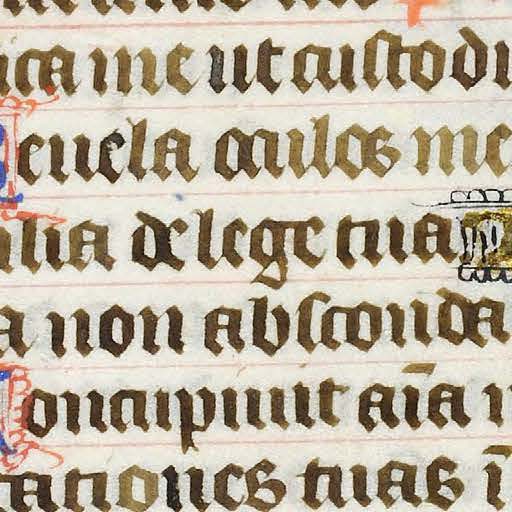 ica me ut custodi
Reuela oculos me
alia de lege tua
a non absconda
Concupiuit aīa
tationes tuas ī